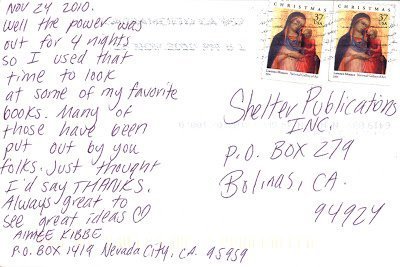 NOV 24 2010.
Well the power was
out for 4 nights
so I used that
time to look
at some of my favorite
books. Many of
those have been
put out by you
folks. Just thought
I'd say THANKS.
Always great to
see great ideas ♡
AIMEE KIBBE
P.O. BOX 1419 Nevada City, CA. 95959
CHRISTMAS
37
USA
CHRISTMAS
37
USA
Shelter Publications
INC.
P.O. BOX 279
Bolinas, CA.
94924